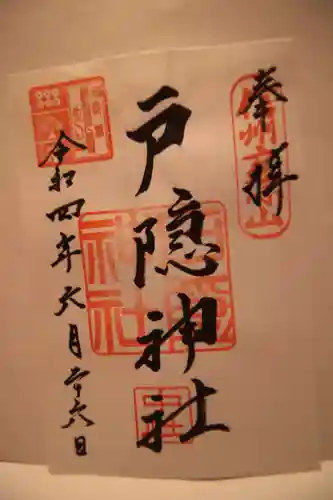 奉拝
信州戸隠山
戸隠神社
令和四年六月二十六日